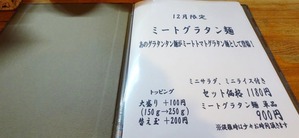 12月限定
ミートグラタン麺
あのグラタンタン麺がミートトマトグラタン麺として登場!
ミニサラダ、ミニライス付き
セット価格 1180円
ミートグラタン麺 単品
900円
トッピング
大盛り +100円
(150g→250g)
替え玉 +200円